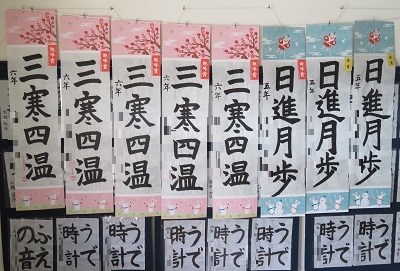 日進月歩
五年
日進月歩
五年
日進月歩
五年
三寒四温
六年
三寒四温
六年
三寒四温
六年
三寒四温
六年
三寒四温
六年
うで
時計
うで
時計
うで
時計
うで
時計
うで
時計
うで
時計
うで
時計
ふえ
の音